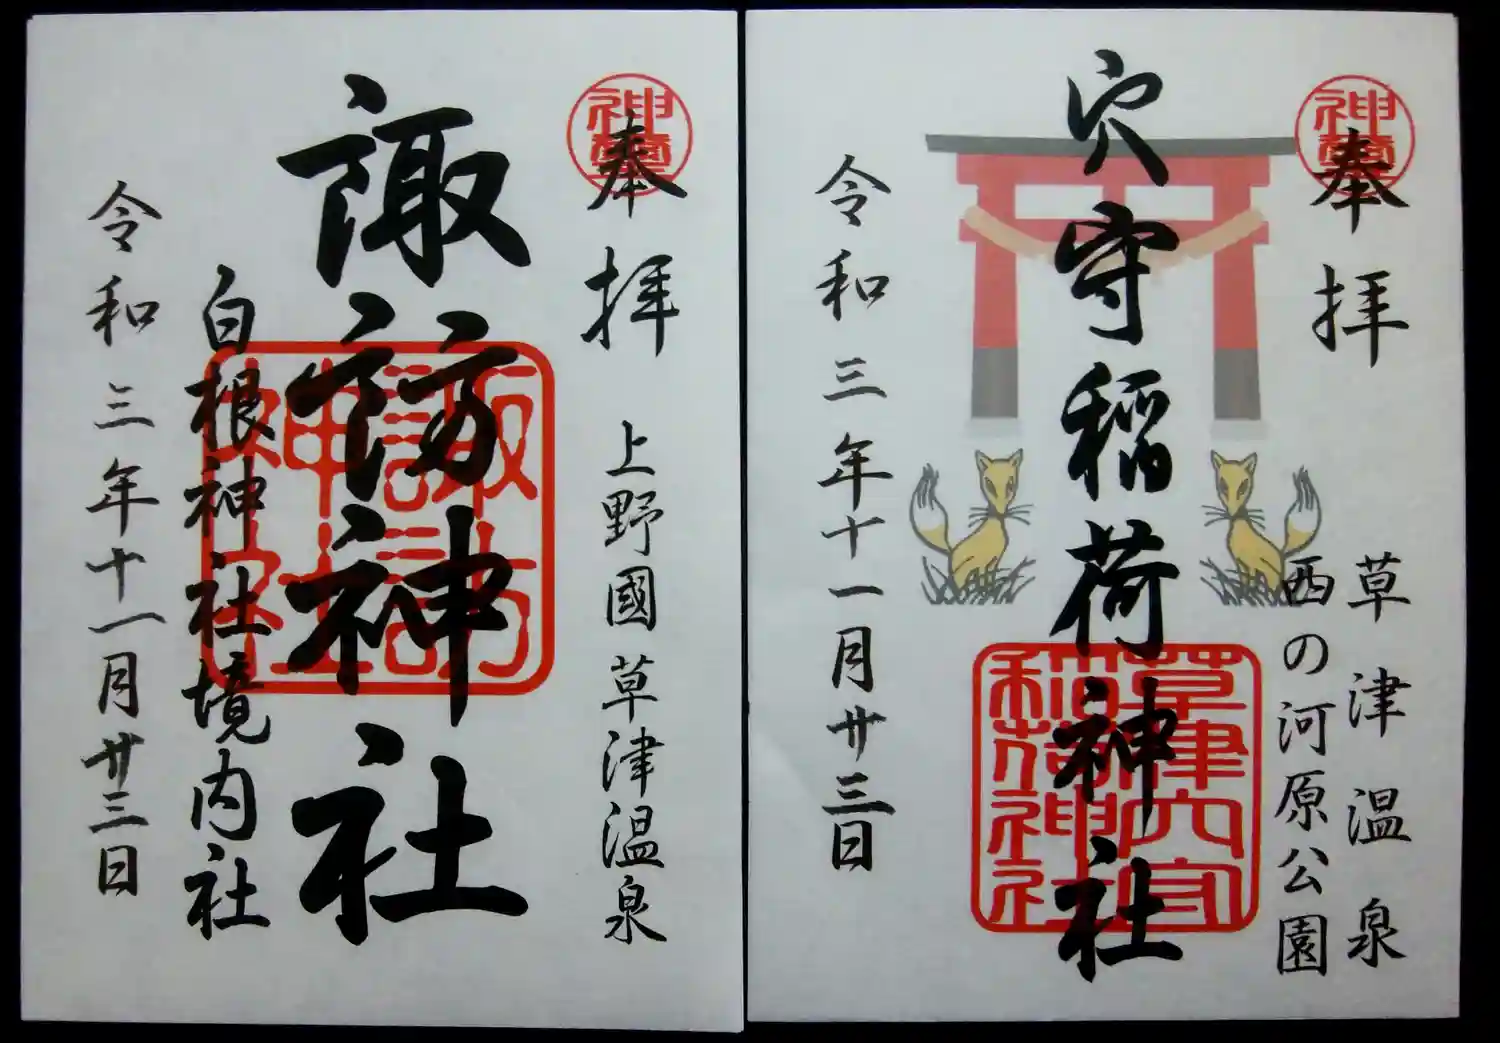 奉拝
草津温泉
西の河原公園
穴守稲荷神社
草津穴守
稲荷神社
令和三年十一月廿三日
奉拝
上野國草津温泉
諏訪神社
諏訪
神社
白根神社境内社
令和三年十一月廿三日